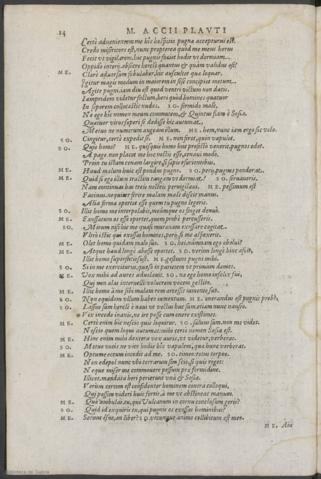 24 M. ACCII PLAVTI
Certè aduenientem me hic hospitio pugneo accepturus est.
Credo misericors est, nunc propterea quod me meus herus
Fecit vt vigilarem, hic pugnis faciet hodie vt dormiam.
Oppidò interij. obsecro herclè quantus & quàm validus est!
ME. Clarè aduersum fabulabor, hic auscultet quæ loquar.
Igitur magis modum in maiorem in sese concipiet metum.
Agite pugni, iam diu est quod ventri victum non datis.
Iampridem videtur factum, heri quòd homines quatuor
In soporem collocastis nudos. SO. formido malè,
Ne ego hîc nomen meum commutem, & Quintus fiam è Sosia.
Quatuor viros sopori se dedisse hic autumat.
Metuo ne numerum augeam illum. ME. hem, nunc iam ergo sic volo.
SO. Cingitur, certè expedit se. ME. non feret, quin vapulet.
SO. Quis homo? ME. quisquis homo huc profectò venerit, pugnos edet.
SO. Apage, non placet me hoc noctis esse, cœnaui modo.
Proin tu istam cœnam largire, si sapis esurientibus.
ME. Haud malum huic est pondus pugno. SO. perij, pugnos ponderat.
ME. Quid si ego illum tractim tangam vt dormiat? SO. seruaueris,
Nam continuas has tres noctes peruigilaui. ME. pessimum est
Facimus, nequiter ferire malam malè discit manus.
Alia forma oportet esse quem tu pugno legeris.
SO. Illic homo me interpolabit, meumque os finget denuò.
ME. Exossatum os esse oportet, quem probè percusseris.
SO. Mirum ni hic me quasi murænam exossare cogitat.
Vltrò istic qui exossat homines, perij si me aspexerit.
ME. Olet homo quidam malo suo. SO. hei, numnam ego obolui?
ME. Atque haud longè abesse oportet. SO. verùm longè hinc abfuit,
Illic homo superstitiosus est. ME. gestiunt pugni mihi.
SO. Si in me exercituru's, quæso in parietem vt primùm domes.
ME. Vox mihi ad aureis aduolauit. SO. næ ego homo infelix fui,
Qui non alas interuelli volucrem vocem gestito.
ME. Illic homo à me sibi malam rem arcessit iumento suo.
SO. Non equidem vllum habeo iumentum. ME. onerandus est pugnis probè,
SO. Lassus sum herclè è naui vt vectus huc sum, etiam nunc nauseo.
Vix incedo inanis, ne ire posse cum onere existimes.
ME. Certè enim hic nescio quis loquitur. SO. saluus sum, non me videt.
Nescio quem loqui autumat, mihi certò nomen Sosia est.
ME. Hinc enim mihi dextera vox aureis, vt videtur, verberat.
SO. Metuo vocis ne vice hodie hîc vapulem, quæ hunc verberat.
ME. Optumè eccum incedit ad me. SO. timeo, totus torpeo.
Non edepol nunc vbi terrarum sim scio, si quis roget:
Neque miser me commouere possum præ formidine.
Ilicet, mandata heri perierunt vnà & Sosia.
Verùm certum est confidenter hominem contrà colloqui,
Qui possim videri huic fortis, à me vt abstineat manum.
ME. Quò ambulas tu, qui Vulcanum in cornu conclusum geris?
SO. Quid id exquiris tu, qui pugnis os exossas hominibus?
ME. Seruus ésne, an liber? SO. vtcunque animo collibitum est meo.
ME. Ain